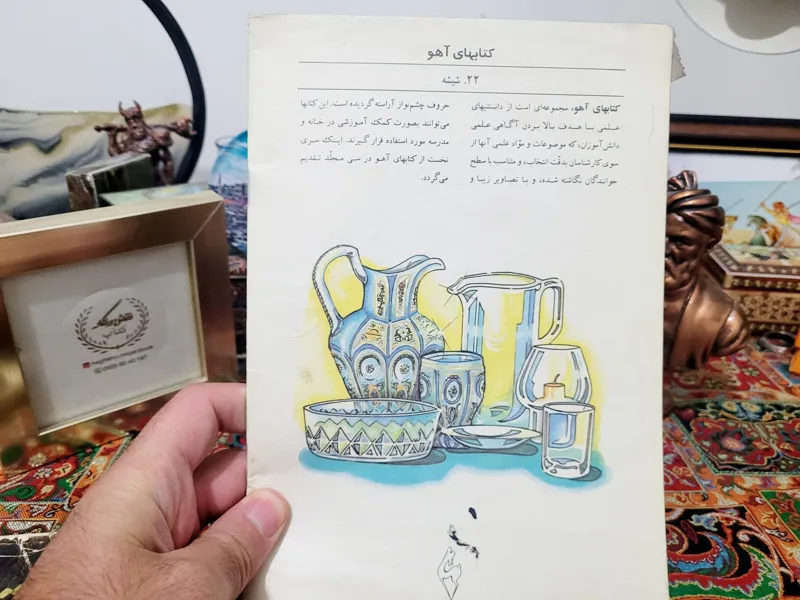 کتابهای آهو
۲۲. شیشه
کتابهای آهو، مجموعه‌ای است از دانستنیهای
علمی با هدف بالا بردن آگاهی علمی
دانش‌آموزان، که موضوعات و موّاد علمی آنها از
سوی کارشناسان بدقّت انتخاب، و متناسب با سطح
خوانندگان نگاشته شده، و با تصاویر زیبا و
حروف چشم‌نواز آراسته گردیده است. این کتابها
می‌توانند بصورت کمک آموزشی در خانه و
مدرسه مورد استفاده قرار گیرند. اینک سری
نخست از کتابهای آهو در سی مجلّد تقدیم
می‌گردد.
کتاب